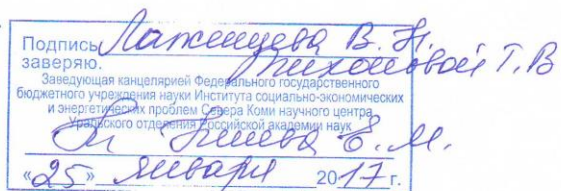 Подпись Лаженцева В. Н.
заверяю. Тихоновой Т. В
Заведующая канцелярией Федерального государственного
бюджетного учреждения науки Института социально-экономических
и энергетических проблем Севера Коми научного центра
Уральского отделения Российской академии наук
Е. М.
«25» января 2017 г.